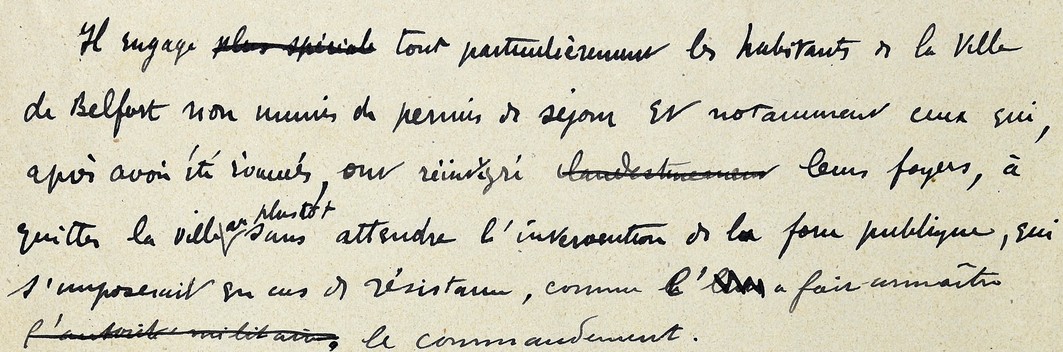 Il engage plus spéciale tout particulièrement les habitants de la Ville
de Belfort non munis de permis de séjour et notamment ceux qui,
après avoir été évacués, ont réintégré clandestinement leurs foyers, à
quitter la ville au plustôt sans attendre l'intervention de la force publique, qui
s'imposerait en cas de résistance, comme l'a fait connaître
l'autorité militaire, le commandement.